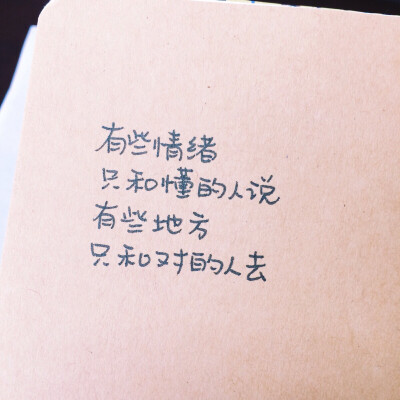 有些情绪
只和懂的人说
有些地方
只和对的人去